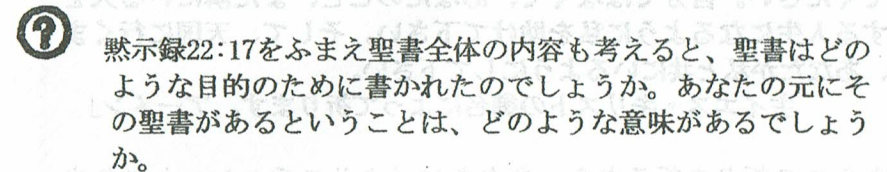 ?
黙示録22:17をふまえ聖書全体の内容も考えると、聖書はどの
ような目的のために書かれたのでしょうか。あなたの元にそ
の聖書があるということは、どのような意味があるでしょう
か。